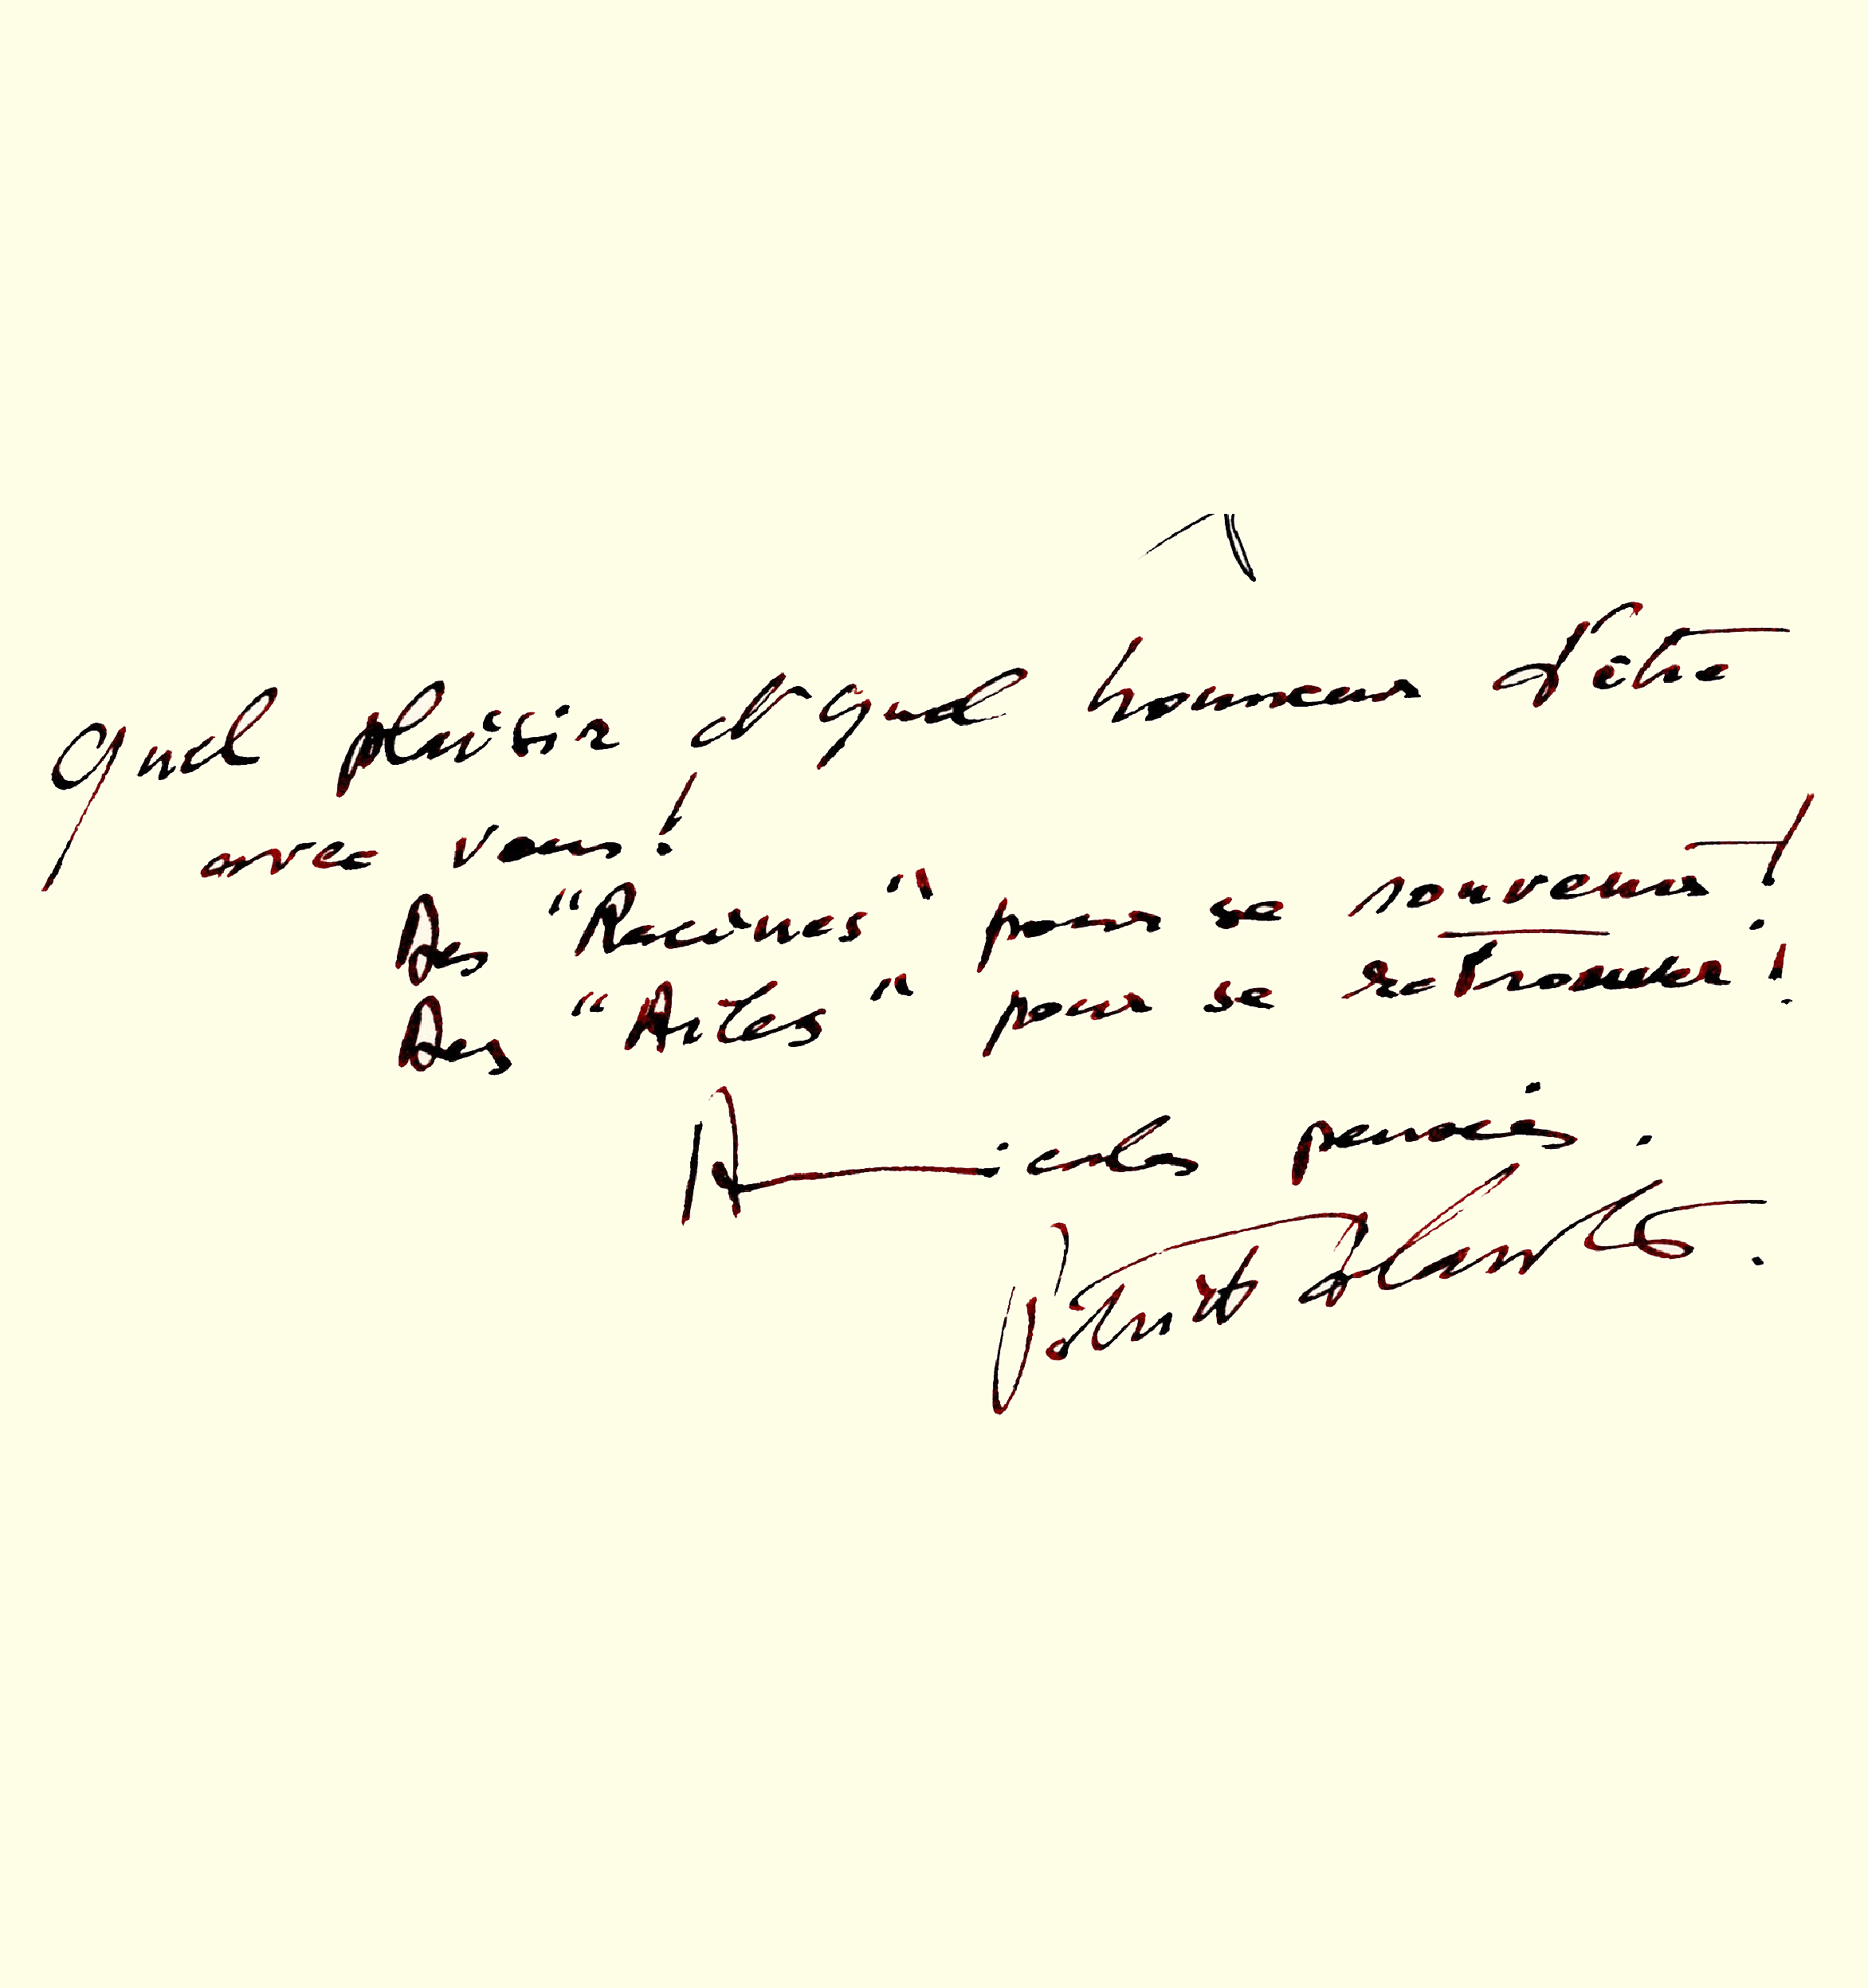 Quel plaisir et quel honneur d'être
avec vous !
Des "Racines" pour se souvenir !
Des "Ailes" pour se retrouver !
Amicales pensées.